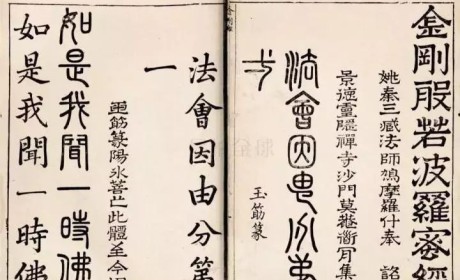 金剛般若波羅密經
姚秦三藏法師鳩摩羅什奉 詔
景德靈隱禪寺沙門莫菴道肯集
法會因由分第
弌
玉筯篆
法會因由分第
一
玉筯篆陽冰善此體至今
如是我聞一時佛
如是我聞一時佛